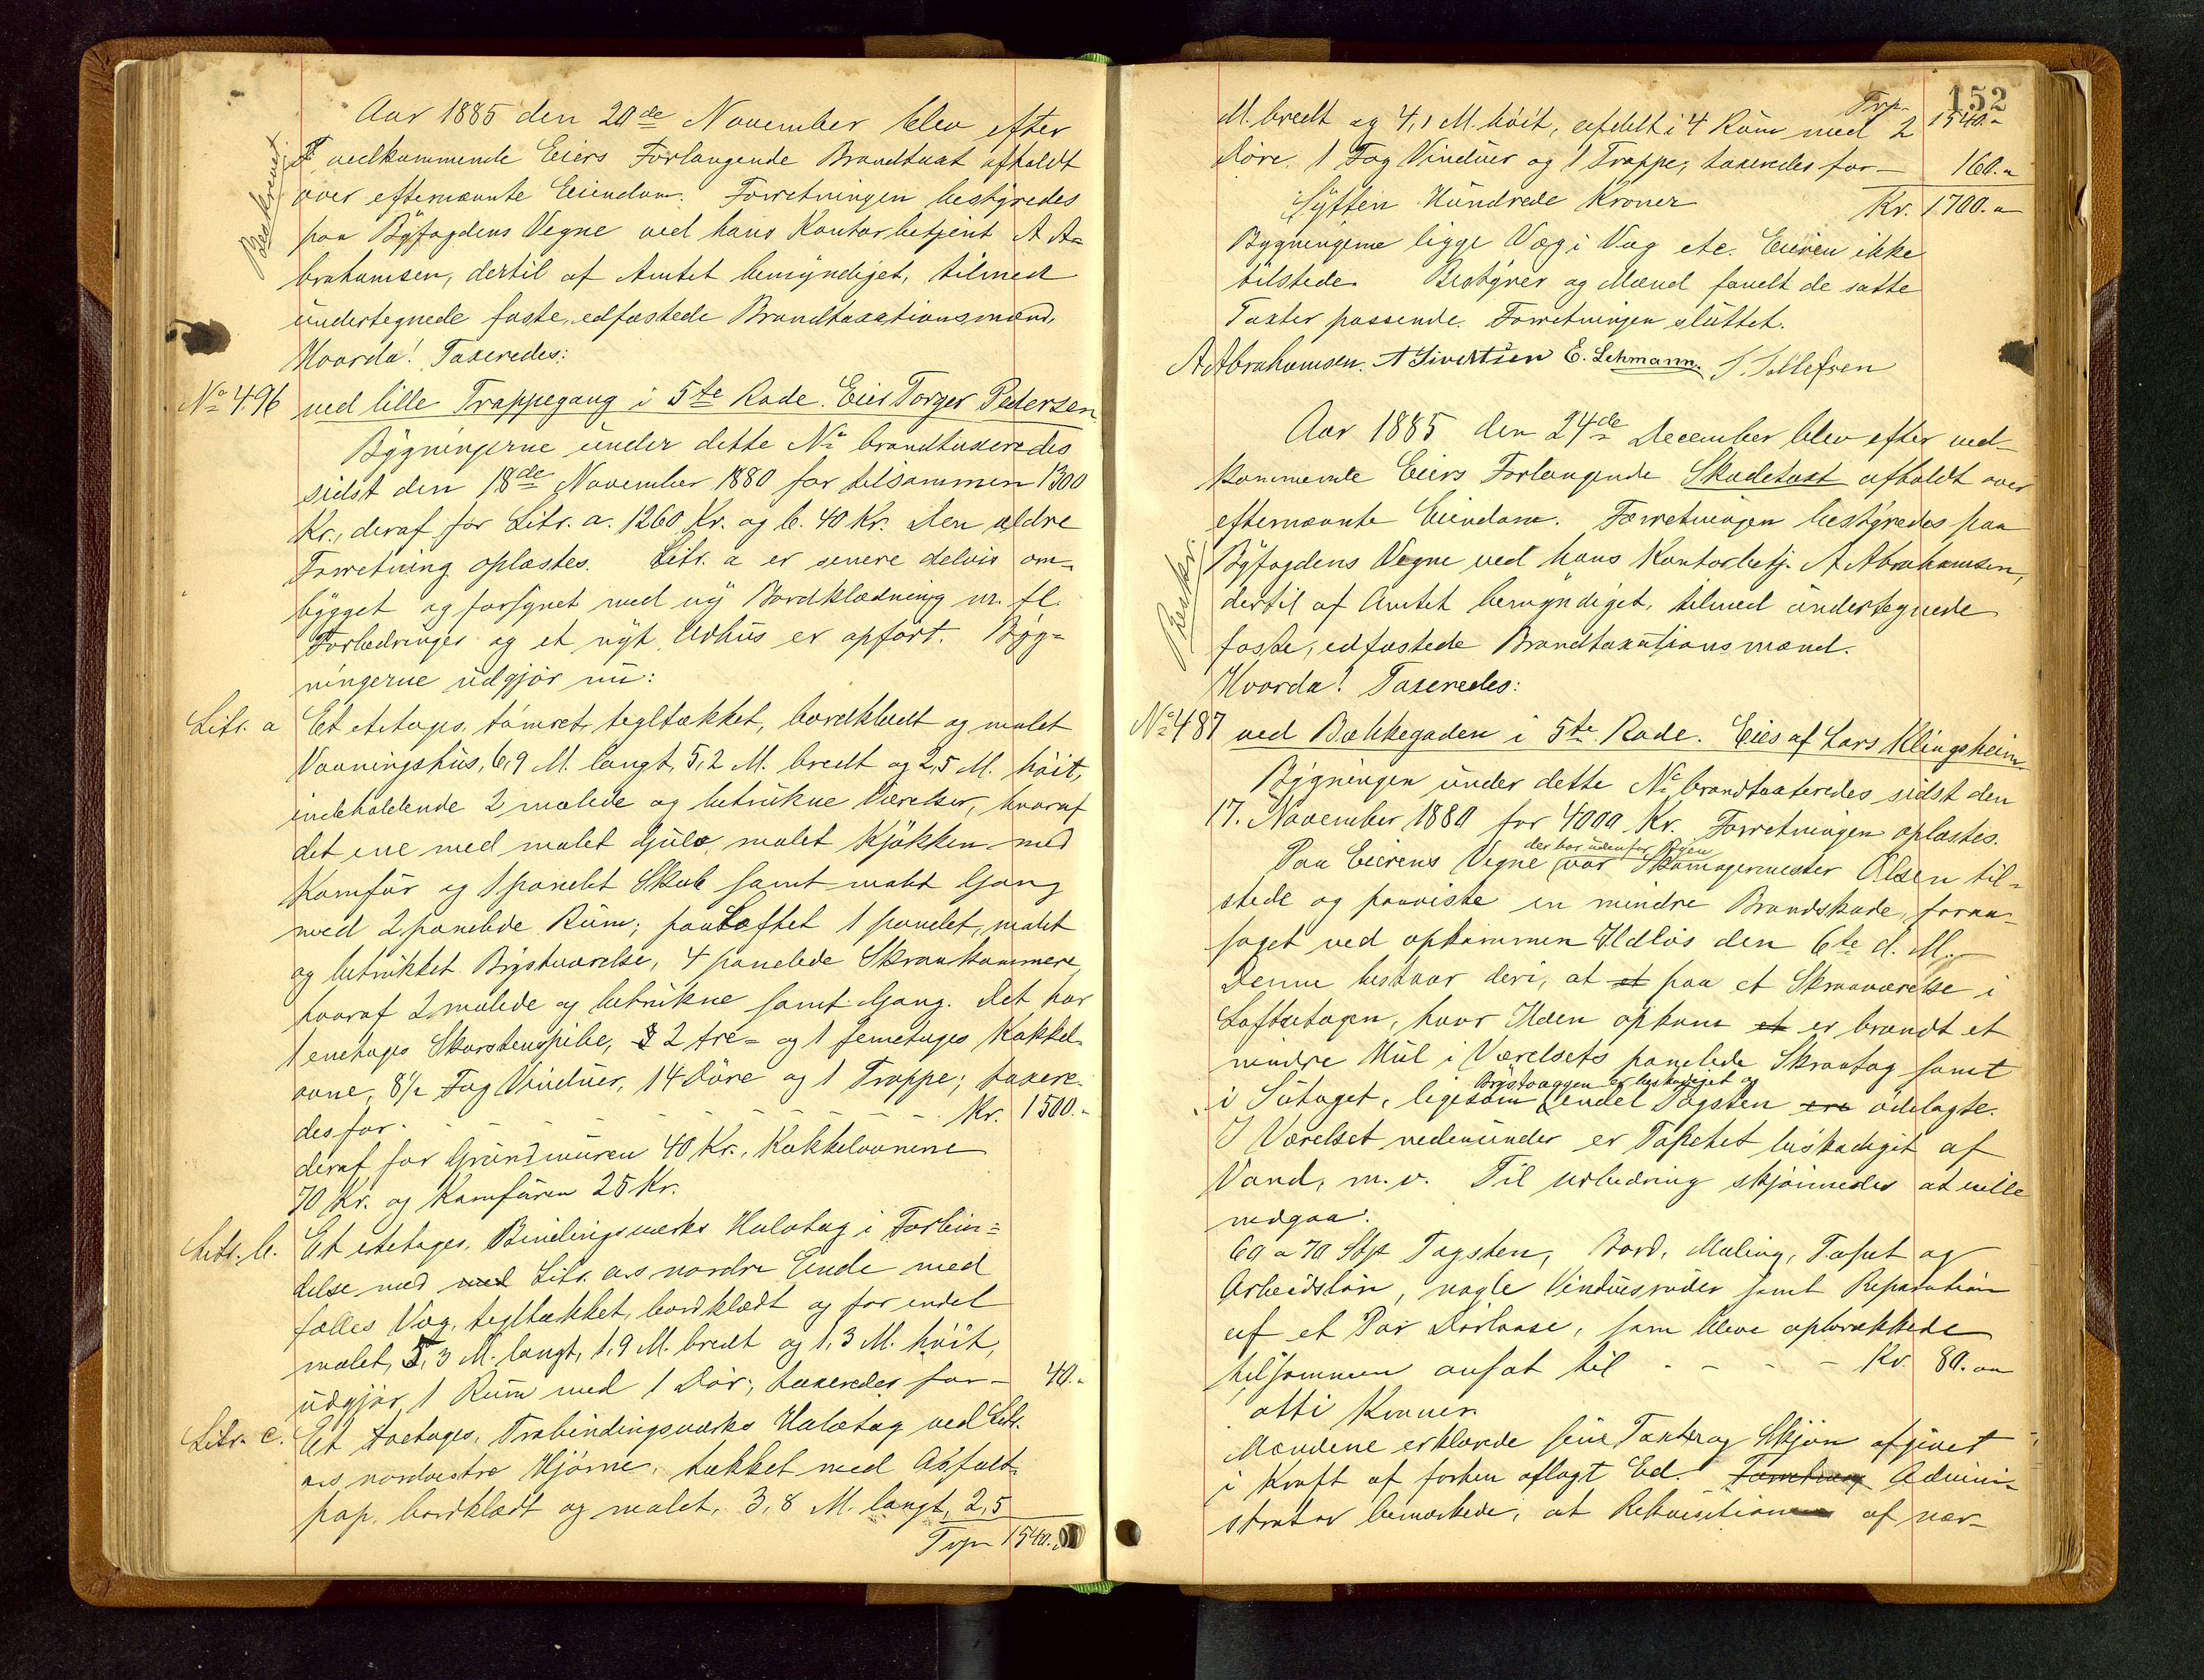 Aar 1885 den 20de November blev efter
vedkommende Eiers Forlangende Brandtaxt afholdt
over efternævnte Eiendom. Forretningen bestyredes
paa Byfogdens Vegne ved hans Kontorbetjent A A=
brahamsen, dertil af Amtet bemyndiget, tilmed
undertegnede faste, edfæstede Brandtaxationsmænd,
Hvorda! Taxeredes:
Beskrevet.
No 496 ved lille Trappegang i 5te Rode. Eier Torger Pedersen
Bygningerne under dette No brandtaxeredes
sidst den 18de November 1880 for tilsammen 1300
Kr., deraf for Litr. a. 1260 Kr. og b. 40 Kr. Den ældre
Forretning oplæstes. Litr. a er senere delvis om=
bygget og forsynet med ny Bordklædning m. fl.
Forbedringer og et nyt Udhus er opført. Byg=
ningerne udgjør nu:
Litr. a Et etetages, tømret, tegltækket, bordklædt og malet
Vaaningshus, 6,9 M. langt, 5,2 M. bredt og 2,5 M. høit,
indeholdende 2 malede og betrukne Værelser, hvoraf
det ene med malet Gulv, malet Kjøkken med
Komfur og 1 panelet Skab samt malet Gang
med 2 panelede Rum; paa Loftet 1 panelet, malet
og betrukket Brystværelse, 4 panelede Skraakammere,
hvoraf 2 malede og betrukne samt Gang. Det har
1 enetages Skorstenspibe, 2 tre= og 1 femetages Kakkel-
ovne, 8½ Fag Vinduer, 14 Døre og 1 Trappe; taxere-
des for - - - - - - - - Kr. 1500.-
deraf for Grundmuren 40 Kr., Kakkelovnene
70 Kr. og Komfuren 25 Kr.
Litr. b. Et etetages, Bindingsværks Halvtag i Forbin=
delse med med Litr. a.s nordre Ende med
fælles Væg, tegltækket, bordklædt og for endel
malet, 5,3 M. langt, 1,9 M. bredt og 1,3 M. høit,
udgjør 1 Rum med 1 Dør; taxeredes for - 40.-
Litr. c. Et toetages, Træbindingsværks Halvtag ved Litr.
a.s nordvestre Hjørne, tækket med Asfalt-
pap, bordklædt og malet, 3,8 M. langt, 2,5
Trp. 1540.-
152
Trp. 1540.-
M. bredt og 4,1 M. høit, afdelt i 4 Rum med 2
Døre, 1 Fag Vinduer og 1 Trappe; taxeredes for - 160.-
Sytten Hundrede Kroner Kr. 1700.-
Bygningerne ligge Væg i Væg etc. Eieren ikke
tilstede. Bestyrer og Mænd fandt de satte
Taxter passende. Forretningen sluttet.
A Abrahamsen. A Sivertsen E. Lehmann. T. Tollefsen
Aar 1885 den 24de December blev efter ved-
kommende Eiers Forlangende Skadetaxt afholdt over
efternævnte Eiendom. Forretningen bestyredes paa
Byfogdens Vegne ved hans Kontorbetj. A Abrahamsen,
dertil af Amtet bemyndiget, tilmed undertegnede
faste, edfæstede Brandtaxationsmænd.
Hvorda! Taxeredes:
Beskr.
No 487 ved Bækkegaden i 5te Rode. Eies af Lars Klingsheim
Bygningen under dette No brandtaxteredes sidst den
17. November 1880 for 4000 Kr. Forretningen oplæstes.
der bor udenfor Byen
Paa Eierens Vegne var Skomagermester Olsen til=
stede og paaviste en mindre Brandskade, foraar-
saget ved opkommen Ildløs den 6te d. M.
Denne bestaar deri, at et paa et Skraaværelse i
Loftsetagen, hvor Ilden opkom et er brændt et
mindre Hul i Værelsets panelede Skraatag samt
Brystvæggen er beskadiget og
i Sutaget, ligesom endel Tagsten ere ødelagte.
I Værelset nedenunder er Tapetet beskadiget af
Vand, m. v. Til udbedring skjønnedes at ville
medgaa:
60 a 70 Stk Tagsten, Bord, Maling, Tapet og
Arbeidsløn, nogle Vinduesruder samt Reparation
af et Par Dørlaase, som bleve opbrækkede
tilsammen ansat til - - - - Kr. 80.00
otti Kroner.
Mændene erklærede sine Taxter og Skjøn afgivet
i Kraft af forhen aflagt Ed. Forretning Admini-
strator bemærkede, at Rekvisitionen af nær-